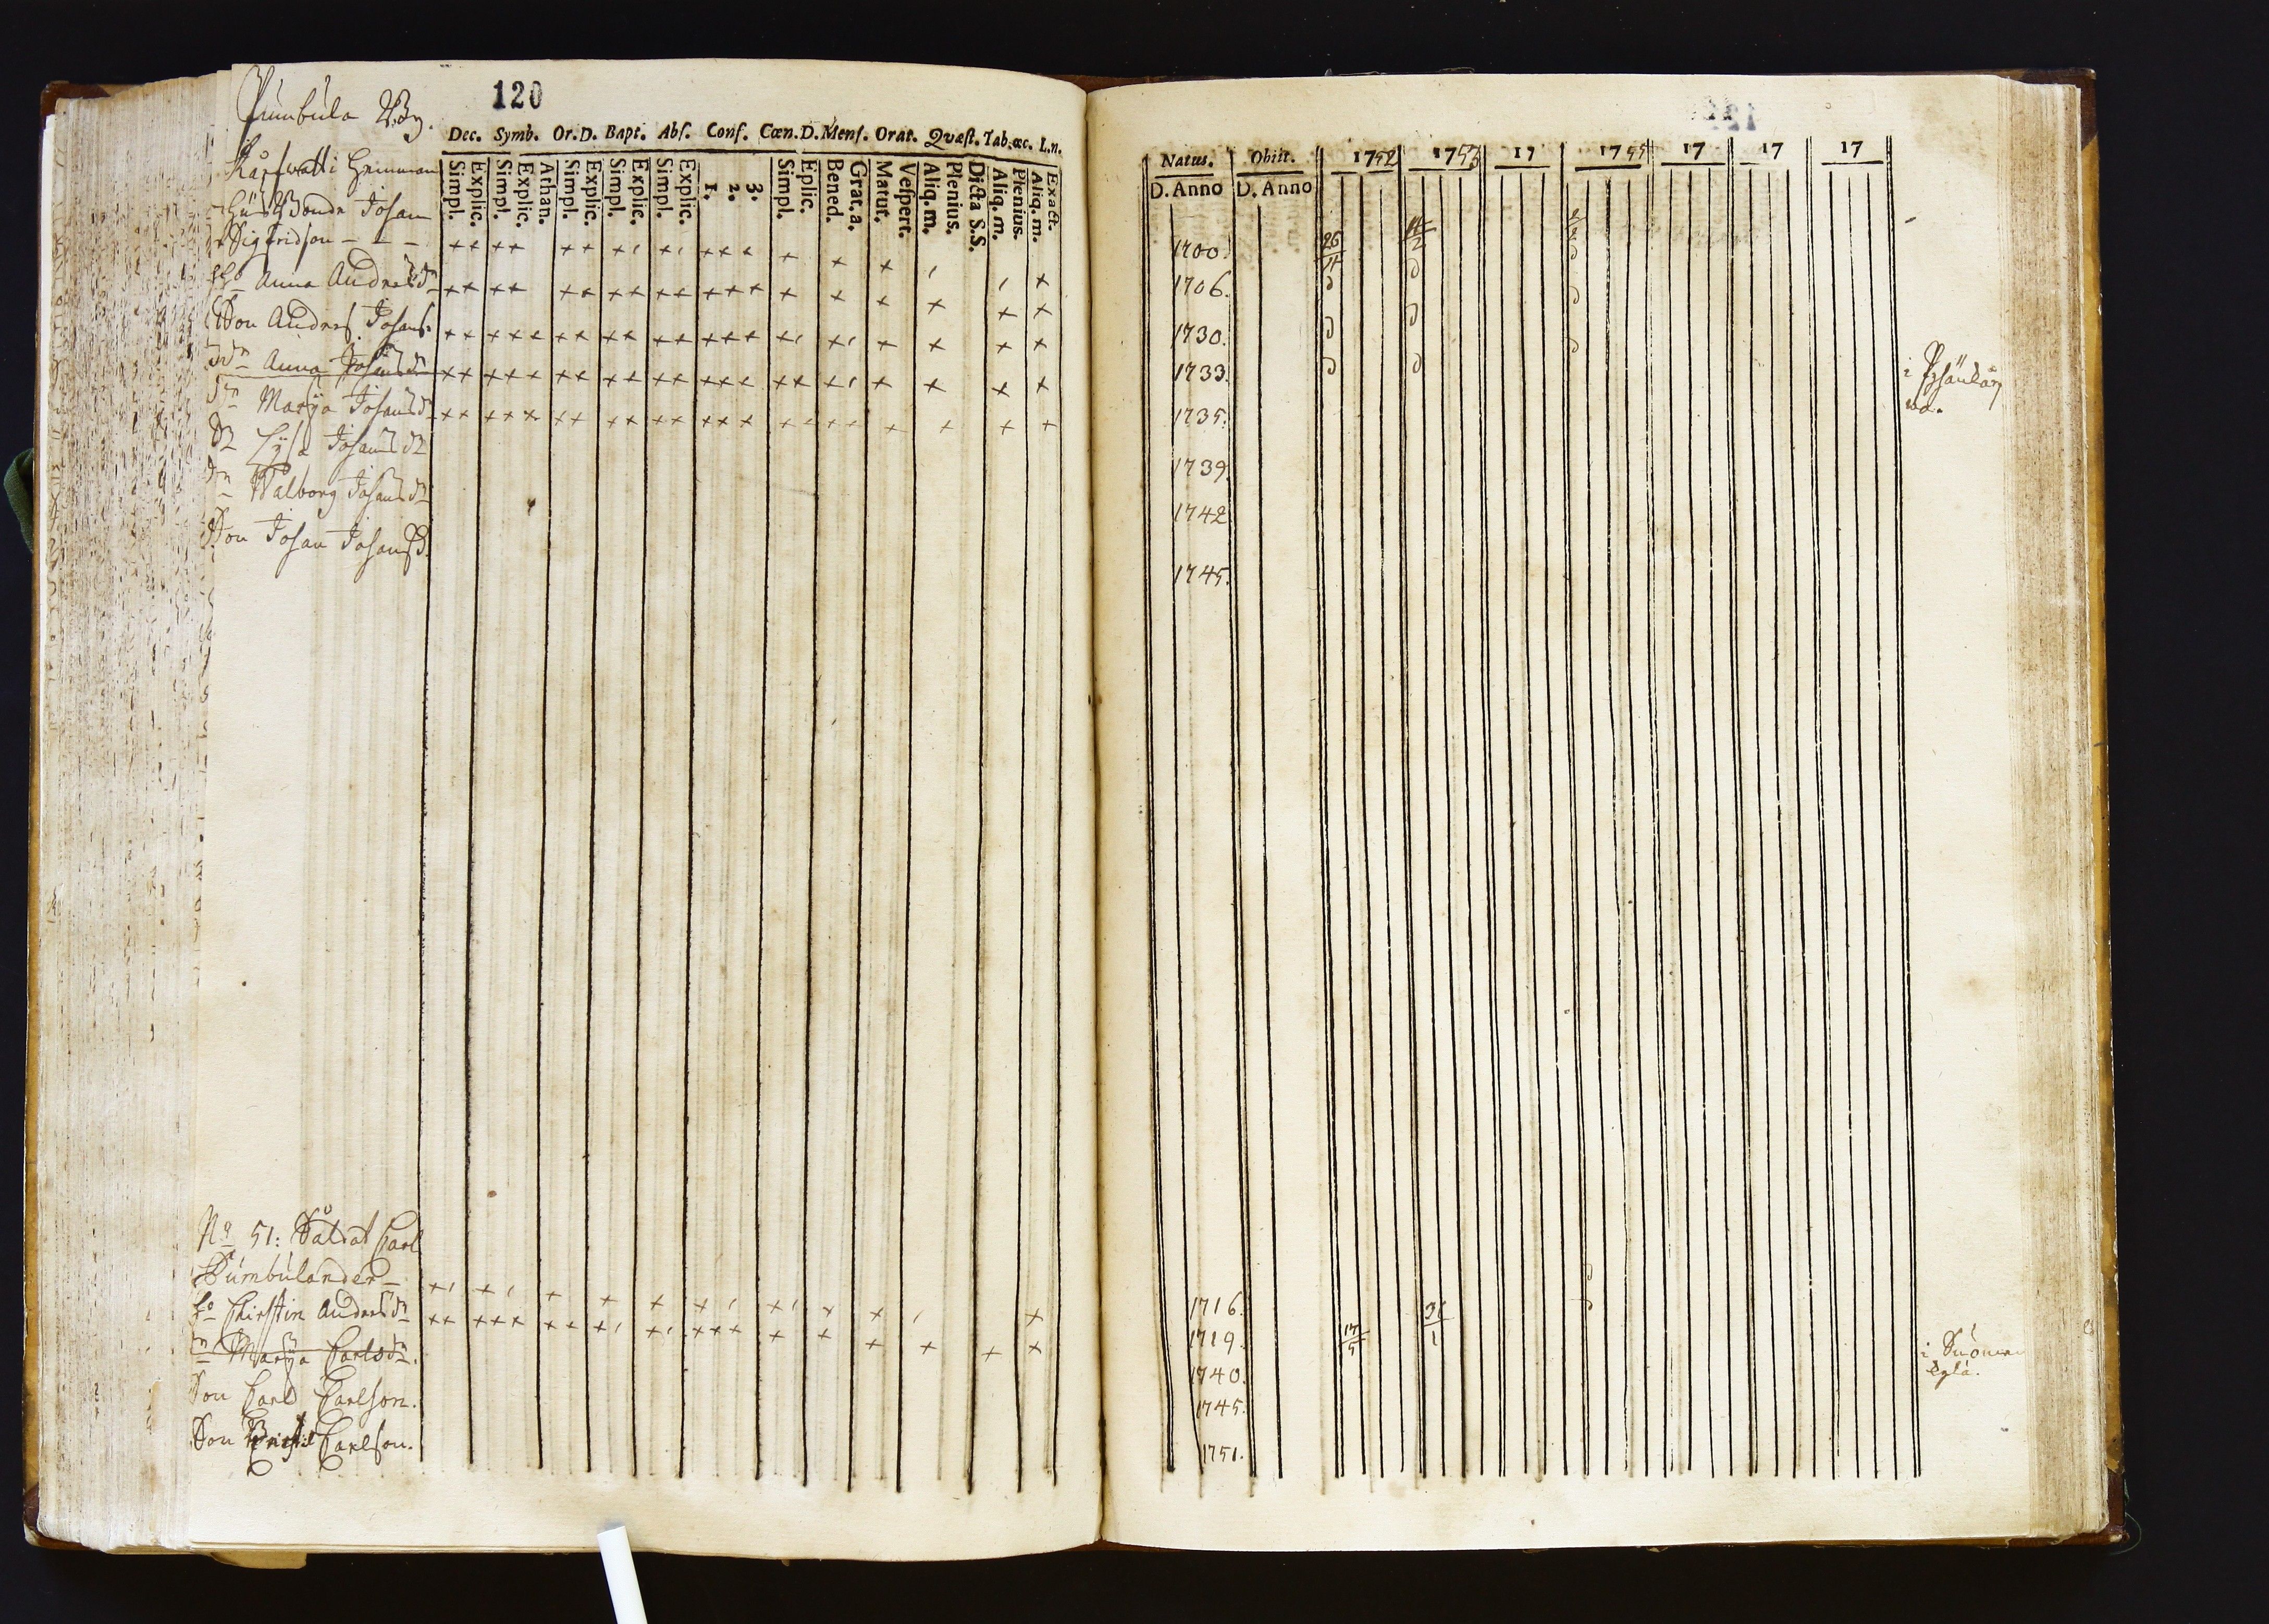 120
Pumbula By.
Dec. Symb. Or. D. Bapt. Abſ. Conf. Cœn. D. Menſ. Orat. Qvæſt. Tab. œc. L. n.
Simpl. Explic. Simpl. Explic. Athan. Simpl. Explic. Simpl. Explic. Simpl. Explic. 1. 2. 3. Simpl. Eplic. Bened. Grat. a. Matut. Veſpert. Aliq. m. Plenius. Dicta S.S. Aliq. m. Plenius. Aliq. m. Exact.
Hemman
Bonde Johan
Sigfridson - - -
++ ++ ++ +, +, +++ + + + , , +
Ho Anna Andersdr
++ ++ ++ ++ ++ +++ + + + + + +
Son Anders Johans
++ +++ ++ ++ ++ +++ +, +, + + + +
Dr Anna Johansdr
++ +++ ++ ++ ++ +++ ++ +, + + + +
Dr Marja Johansdr
++ +++ ++ ++ ++ +++ ++ ++ + + + +
Dr Lisa Johansdr
Dr Walborg Johansdr
Son Johan Johanss.
No 51: Såldat Carl
Pumbulander -
+, +, + + + +, +, + + , +
Ho Chirstin Andersdr
++ +++ ++ +, +, +++ + + + + + +
Dr Marja Carlsdr.
Son Carl Carlson.
Son Carlson.
Natus. Obiit. 1752 1753 17 1755 17 17 17
D. Anno D. Anno
1700. 26/11
1706.
1730.
1733.
1735.
1739.
1742
1745.
1716.
1719. 17/5 31/1
1740.
1745.
1751.